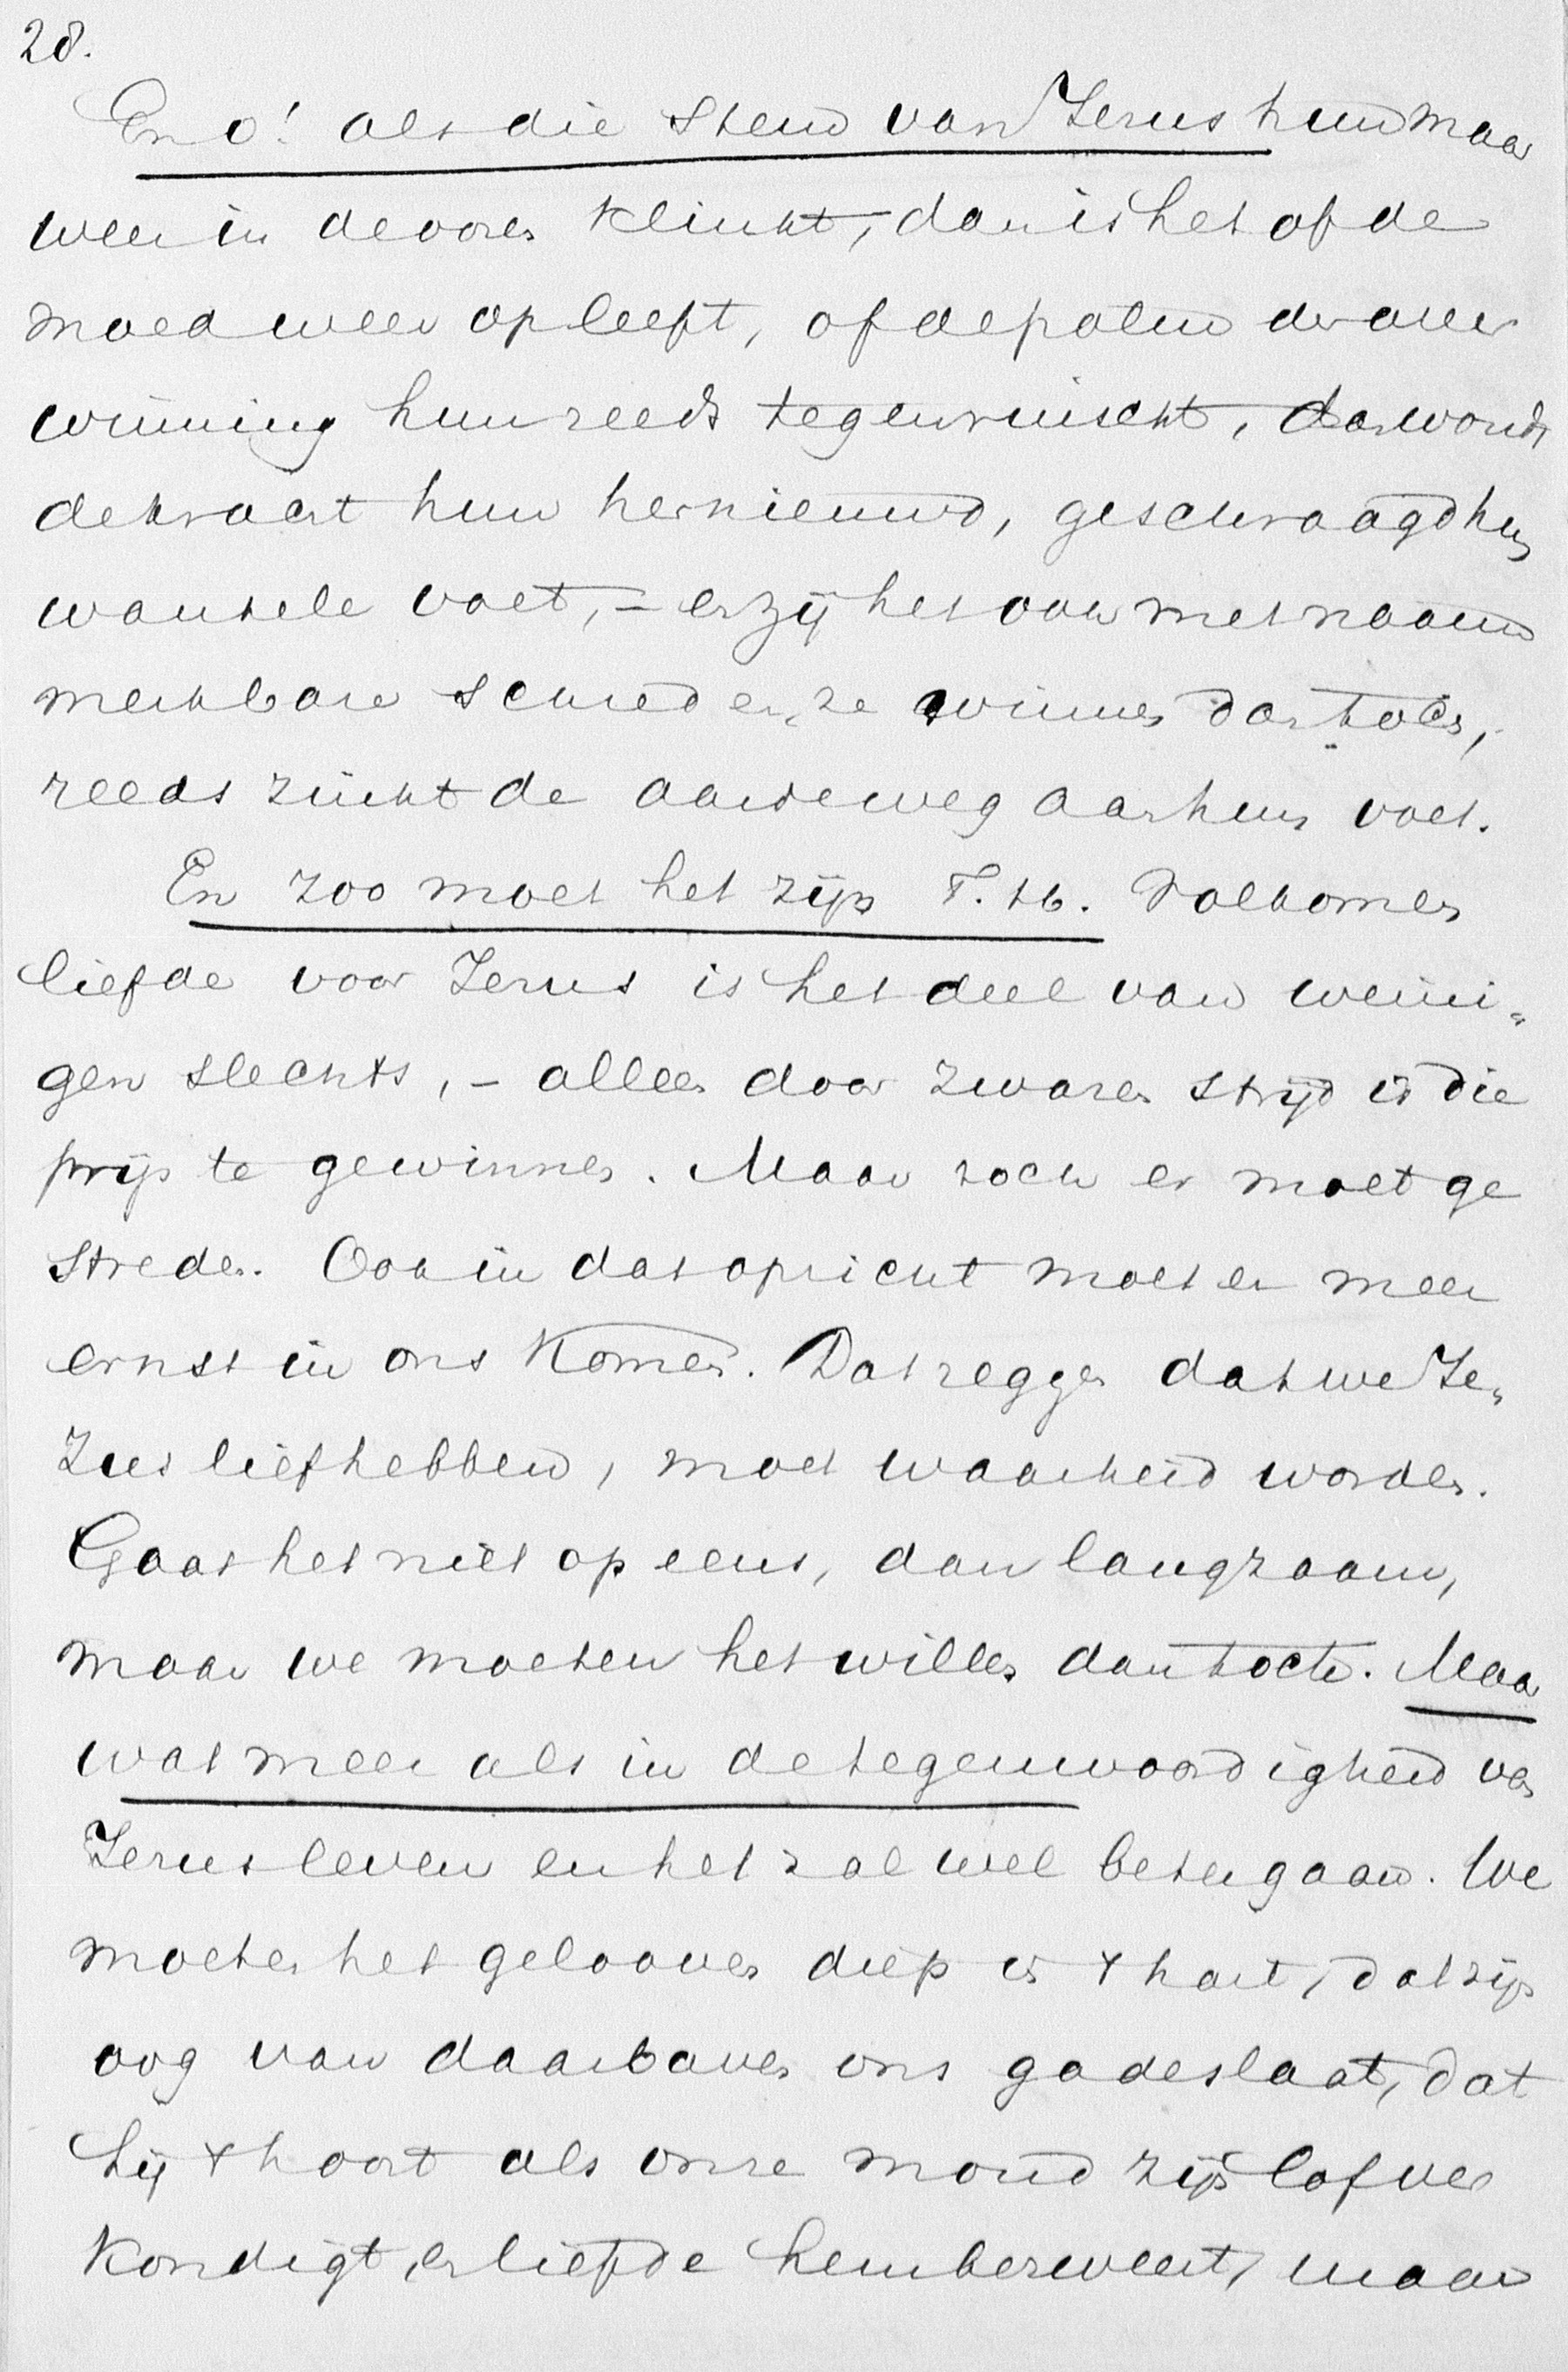 28.
En o! als die stem van Jezus hun maar
weer in de ooren klinkt, dan is het of de
moed weer opleeft, of de palm der over
winning hun reeds tegenruischt, dan wordt
de kracht hun hernieuwd, geschraagd hun
wankele voet, – en zij het ook met naauw
merkbare schreden, ze winnen dan toch,
reeds zinkt de aarde weg aan hun voet.
En zoo moet het zijn T. H. Volkomen
liefde voor Jezus is het deel van weini„
gen slechts, – alleen door zwaren strijd is die
prijs te gewinnen. Maar toch er moet ge
streden. Ook in dat opzicht moet er meer
ernst in ons komen. Dat zeggen dat we Je„
zus liefhebben, moet waarheid worden.
Gaat het niet op eens, dan langzaam,
maar we moeten het willen dan toch. Maar
wat meer als in de tegenwoordigheid van
Jezus leven en het zal wel beter gaan. We
moeten het gelooven diep in 't hart, dat zijn
oog van daarboven ons gadeslaat, dat
hij 't hoort als onze mond zijn lof ver
kondigt, en liefde hem bezweert, maar